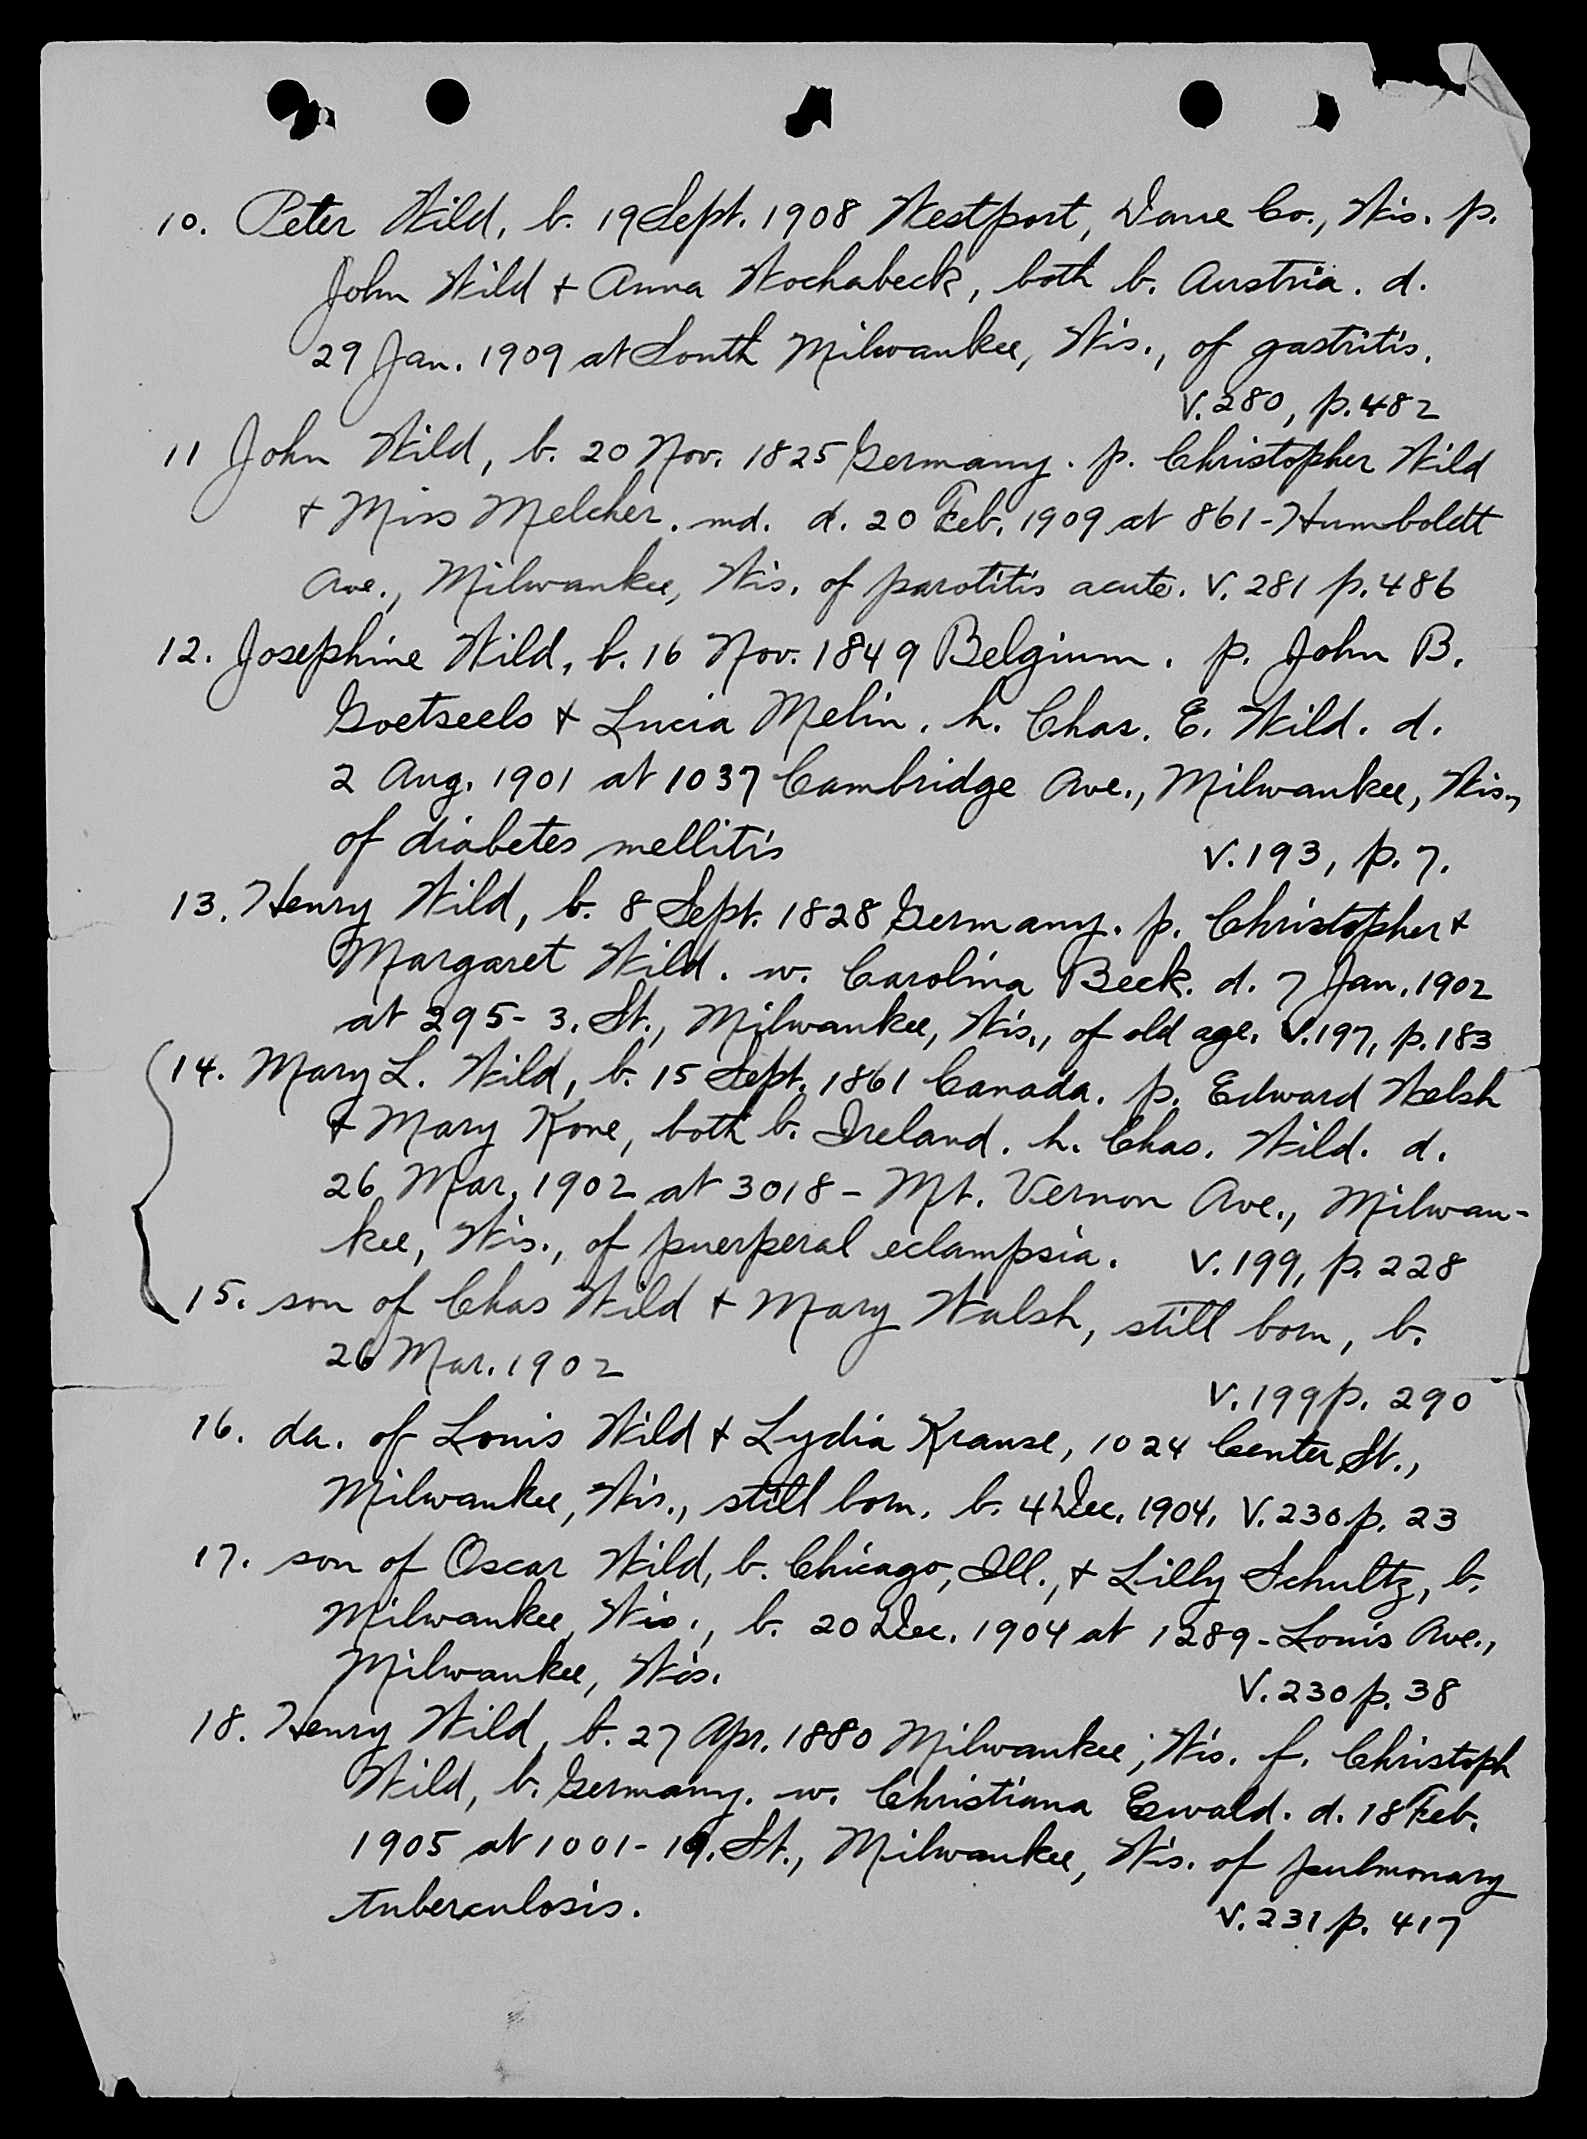 10. Peter Wild, b. 19 Sept. 1908 Westport, Dane Co., Wis. p.
John Wild + Anna Wochabeck, both b. Austria. d.
29 Jan. 1909 at South Milwaukee, Wis., of gastritis.
V. 280, p. 482
11 John Wild, b. 20 Nov. 1825 Germany. p. Christopher Wild
+ Miss Melcher. md. d. 20 Feb. 1909 at 861-Humboldt
Ave., Milwaukee, Wis. of parotitis acute. V. 281 p. 486
12. Josephine Wild, b. 16 Nov. 1849 Belgium. p. John B.
Goetseels + Lucia Melin. h. Chas. E. Wild. d.
2 Aug. 1901 at 1037 Cambridge Ave., Milwaukee, Wis.,
of diabetes mellitis
V. 193, p. 7.
13. Henry Wild, b. 8 Sept. 1828 Germany. p. Christopher +
Margaret Wild. w. Carolina Beck. d. 7 Jan. 1902
at 295- 3. St., Milwaukee, Wis., of old age. V. 197, p. 183
14. Mary L. Wild, b. 15 Sept. 1861 Canada. p. Edward Welsh
+ Mary Kone, both b. Ireland. h. Chas. Wild. d.
26 Mar. 1902 at 3018 - Mt. Vernon Ave., Milwau-
kee, Wis., of puerperal eclampsia. V. 199, p. 228
15. son of Chas Wild + Mary Walsh, still born, b.
26 Mar. 1902
V. 199 p. 290
16. da. of Louis Wild + Lydia Krause, 1024 Center St.,
Milwaukee, Wis., still born. b. 4 Dec. 1904. V. 230 p. 23
17. son of Oscar Wild, b. Chicago, Ill., + Lilly Schultz, b.
Milwaukee, Wis., b. 20 Dec. 1904 at 1289 - Louis Ave.,
Milwaukee, Wis.
V. 230 p. 38
18. Henry Wild, b. 27 Apr. 1880 Milwaukee, Wis. f. Christoph
Wild, b. Germany. w. Christiana Ewald. d. 18 Feb.
1905 at 1001- 19. St., Milwaukee, Wis. of pulmonary
tuberculosis.
V. 231 p. 417